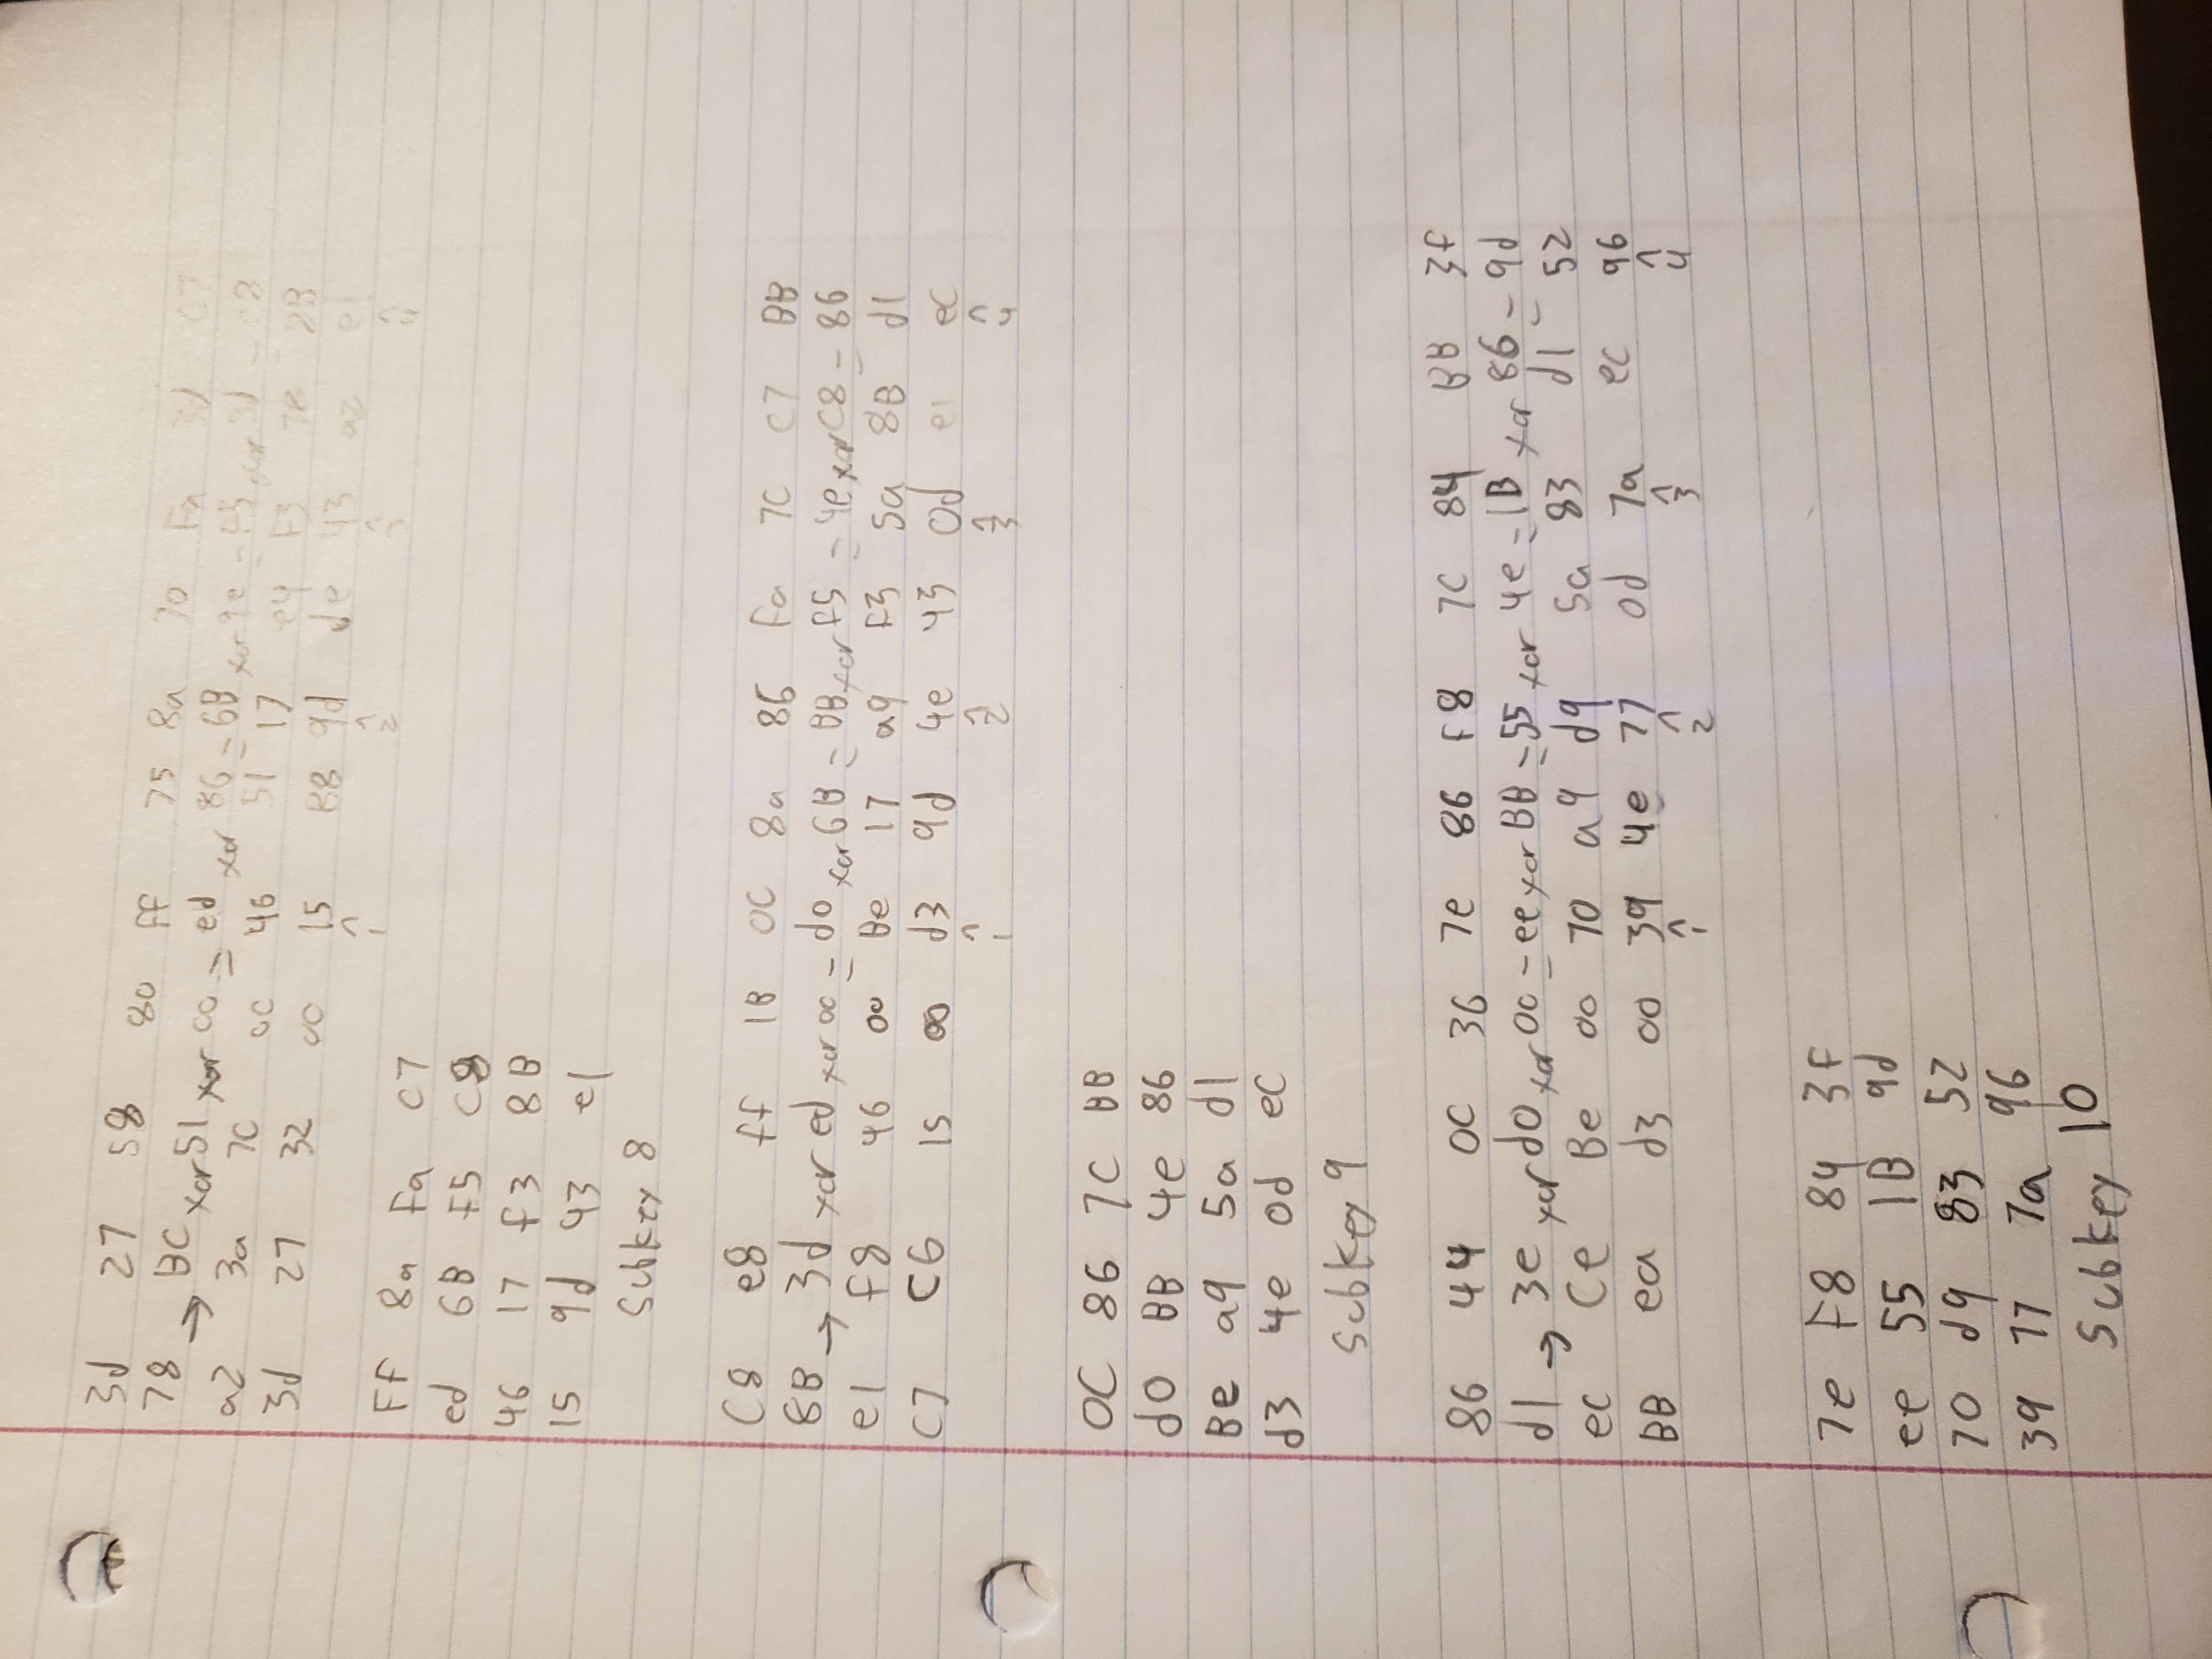 3d 27 58 80 FF 75 8a 70 Fa 3d C7
78 → BC xor 51 xor 00 = ed xor 86 = 6B xor 9e = F5 xor 3d = C8
a2 3a 7C 00 46 51 17 e4 F3 78 8B
3d 27 32 00 15 88 9d de 43 a2 e1
^ ^ ^ ^
1 2 3 4
FF 8a Fa C7
ed 6B F5 C8
46 17 f3 8B
15 9d 43 e1
Subkey 8
C8 e8 ff 1B 0C 8a 86 Fa 7C C7 BB
8B → 3d xor ed xor 00 = d0 xor 6B = BB xor F5 = 4e xor C8 = 86
e1 F8 46 00 Be 17 a9 F3 5a 8B d1
C7 C6 15 00 d3 9d 4e 43 0d e1 eC
^ ^ ^ ^
1 2 3 4
0C 86 7C BB
d0 BB 4e 86
Be a9 5a d1
d3 4e 0d eC
Subkey 9
86 44 0C 36 7e 86 F8 7C 84 BB 3F
d1 → 3e xor d0 xor 00 = ee xor BB = 55 xor 4e = 1B xor 86 = 9d
eC Ce Be 00 70 a9 d9 5a 83 d1 52
BB ea d3 00 39 4e 77 0d 7a eC 96
^ ^ ^ ^
1 2 3 4
7e F8 84 3F
ee 55 1B 9d
70 d9 83 52
39 77 7a 96
Subkey 10